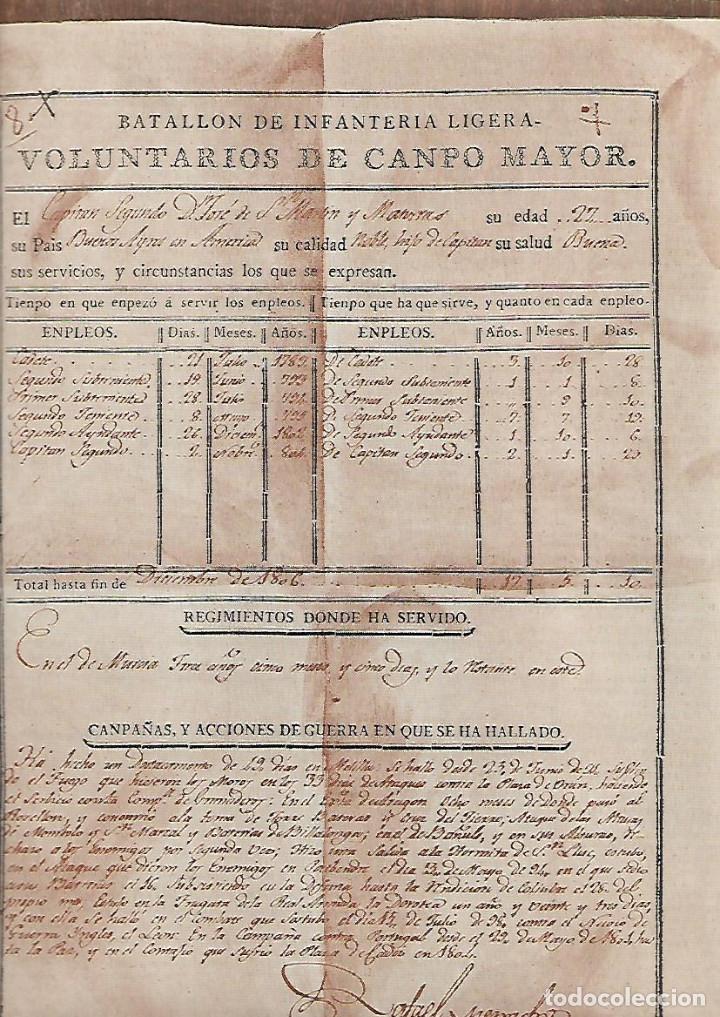 8 X
BATALLON DE INFANTERIA LIGERA-
VOLUNTARIOS DE CANPO MAYOR.
El Capitan Segundo Dn. José de Sn. Martin y Matorras su edad 27 años,
su Pais Buenos Ayres en America su calidad Noble, hijo de Capitan su salud Buena
sus servicios, y circunstancias los que se expresan.
Tienpo en que enpezó á servir los enpleos. Tienpo que ha que sirve, y quanto en cada enpleo-
ENPLEOS. Dias. Meses. Años. ENPLEOS. Años. Meses. Dias.
Cadete 21 Julio 1789 De Cadete 3 10 28
Segundo Subteniente 19 Junio 793 De Segundo Subteniente 1 1 8
Primer Subteniente 28 Julio 794 De Primer Subteniente 9 10
Segundo Teniente 8 Mayo 795 De Segundo Teniente 7 7 19
Segundo Ayudante 26 Diciem. 1802 De Segundo Ayudante 1 10 6
Capitan Segundo 2 Nobre. 804 De Capitan Segundo 2 1 29
Total hasta fin de Diciembre de 1806 17 5 10
REGIMIENTOS DONDE HA SERVIDO.
En el de Murcia Trece años cinco meses y cinco dias, y lo restante en este
CANPAÑAS, Y ACCIONES DE GUERRA EN QUE SE HA HALLADO.
Ha hecho un Destacamento de 49 dias en Melilla: se hallo desde 25 de Junio de
el Fuego que hicieron los Moros en los 33 dias de Ataque contra la Plaza de Oran, haciendo
el Serbicio con la Compa. de Granaderos: En el Exto. de Aragon ocho meses de donde pasó al
Rosellon, y concurrio a la toma de Torre Batera, Cruz del Ataque de las
de Montbolo y Sn. Marzal y Baterias de Billalonga; en el de Bañuls, y en sus Alturas,
a los Enemigos por Segunda Vez; Hizo una Salida a la Hermita de Sn. Lluc, estubo
en el Ataque que dieron los Enemigos en Portbendre el dia de Mayo de 94, en el que
sus Baterias el 16, Subsistiendo en la Defensa hasta la Rendicion de Colubre el 28 del
propio mes, Estubo en la Fragata de la Real Armada la Dorotea un año y veinte y tres dias,
y con ella se halló en el Combate que Sostubo el dia 15 de Julio de 98, contra el Nabio de
Guerra Yngles, el Leon: En la Campaña contra Portugal desde el 29 de Mayo de 1801, has
ta la Paz, y en el Contagio que sufrio la Plaza de Cadiz en 1804.
Rafael
todocoleccion